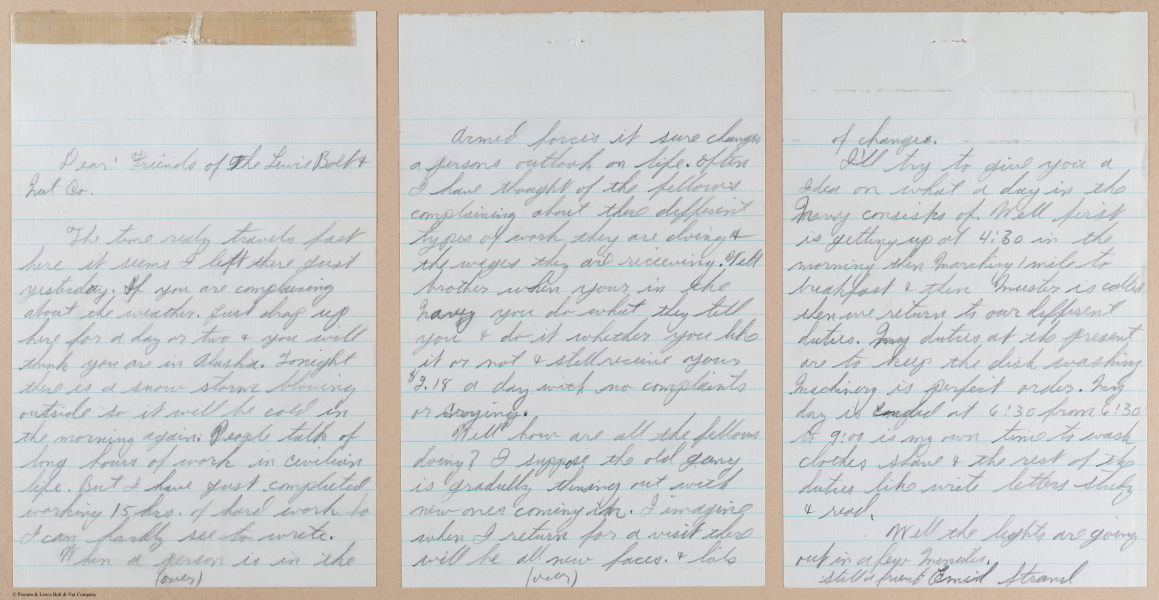 Dear! Friends of The Lewis Bolt &
Nut Co.
The time realy travels fast
here it seems I left there just
yesterday. If you are complaining
about the weather. Just drop up
here for a day or two & you will
think you are in Alaska. Tonight
there is a snow storm blowing
outside so it will be cold in
the morning again. People talk of
long hours of work in civilian
life. But I have just completed
working 15 hrs. of hard work so
I can hardly see to write.
When a person is in the
(over)
Armed forces it sure changes
a persons outlook on life. Often
I have thought of the fellows
complaining about there different
types of work they are doing &
the wages they are recieving. Well
brother when your in the
Navy you do what they tell
you & do it whether you like
it or not & still receive your
$2.18 a day with no complaints
or
Well how are all the fellows
doing? I suppose the old gang
is gradully thining out with
new ones coming in. I imagine
when I return for a visit there
will be all new faces. & lots
(over)
of changes.
I'll try to give you a
Idea on what a day in the
Navy consists of. Well first
is getting up at 4:30 in the
morning then marching 1 mile to
breakfast & then Muster is called
then we return to our different
duties. My duties at the present
are to keep the dish washing
Machinery is perfect order. My
day is ended at 6:30 from 6:30
to 9:00 is my own time to wash
clothes shave & the rest of the
duties like write letters study
& read.
Well the lights are going
out in a few Menutes.
still a friend Emil Strand
© Procura & Lewis Bolt & Nut Company